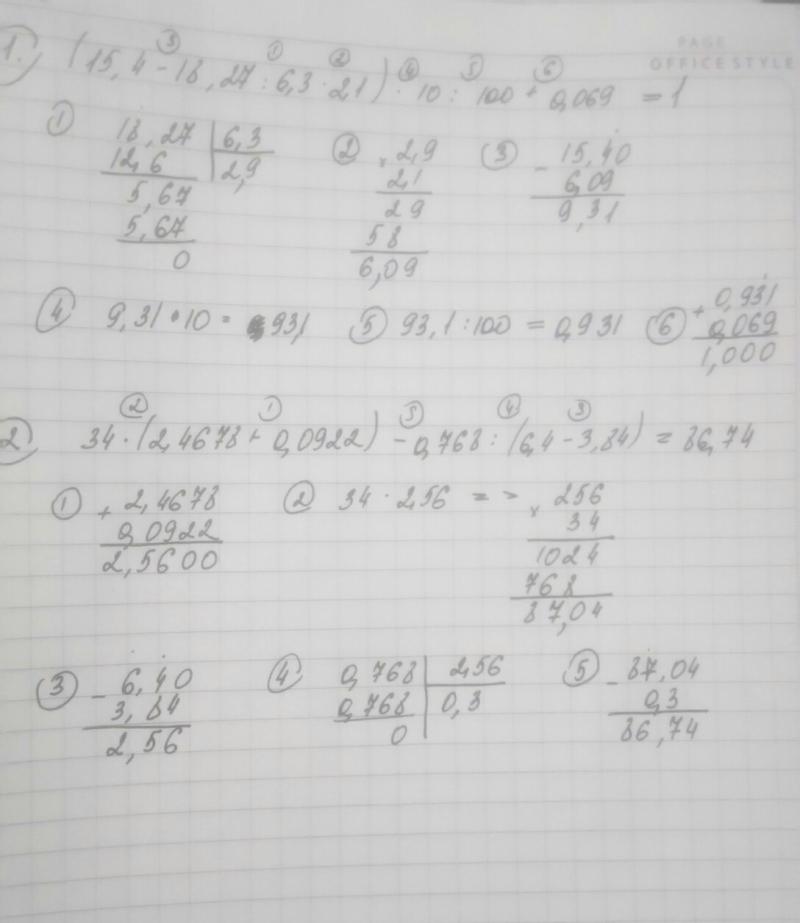 PAGE
OFFICE STYLE
③ ① ② ④ ⑤ ⑥
1. (15,4 - 18,27 : 6,3 · 2,1) · 10 : 100 + 0,069 = 1
① 18,27 | 6,3 ② × 2,9 ③ - 15,40
12,6 | 2,9 2,1 6,09
5,67 29 9,31
5,67 58
0 6,09
④ 9,31 · 10 = 93,1 ⑤ 93,1 : 100 = 0,931 ⑥ + 0,931
0,069
1,000
② ① ⑤ ④ ③
2) 34 · (2,4678 + 0,0922) - 0,768 : (6,4 - 3,84) = 86,74
① + 2,4678 ② 34 · 2,56 = => × 256
0,0922 34
2,5600 1024
768
87,04
③ - 6,40 ④ 0,768 | 2,56 ⑤ - 87,04
3,84 0,768 | 0,3 0,3
2,56 0 86,74